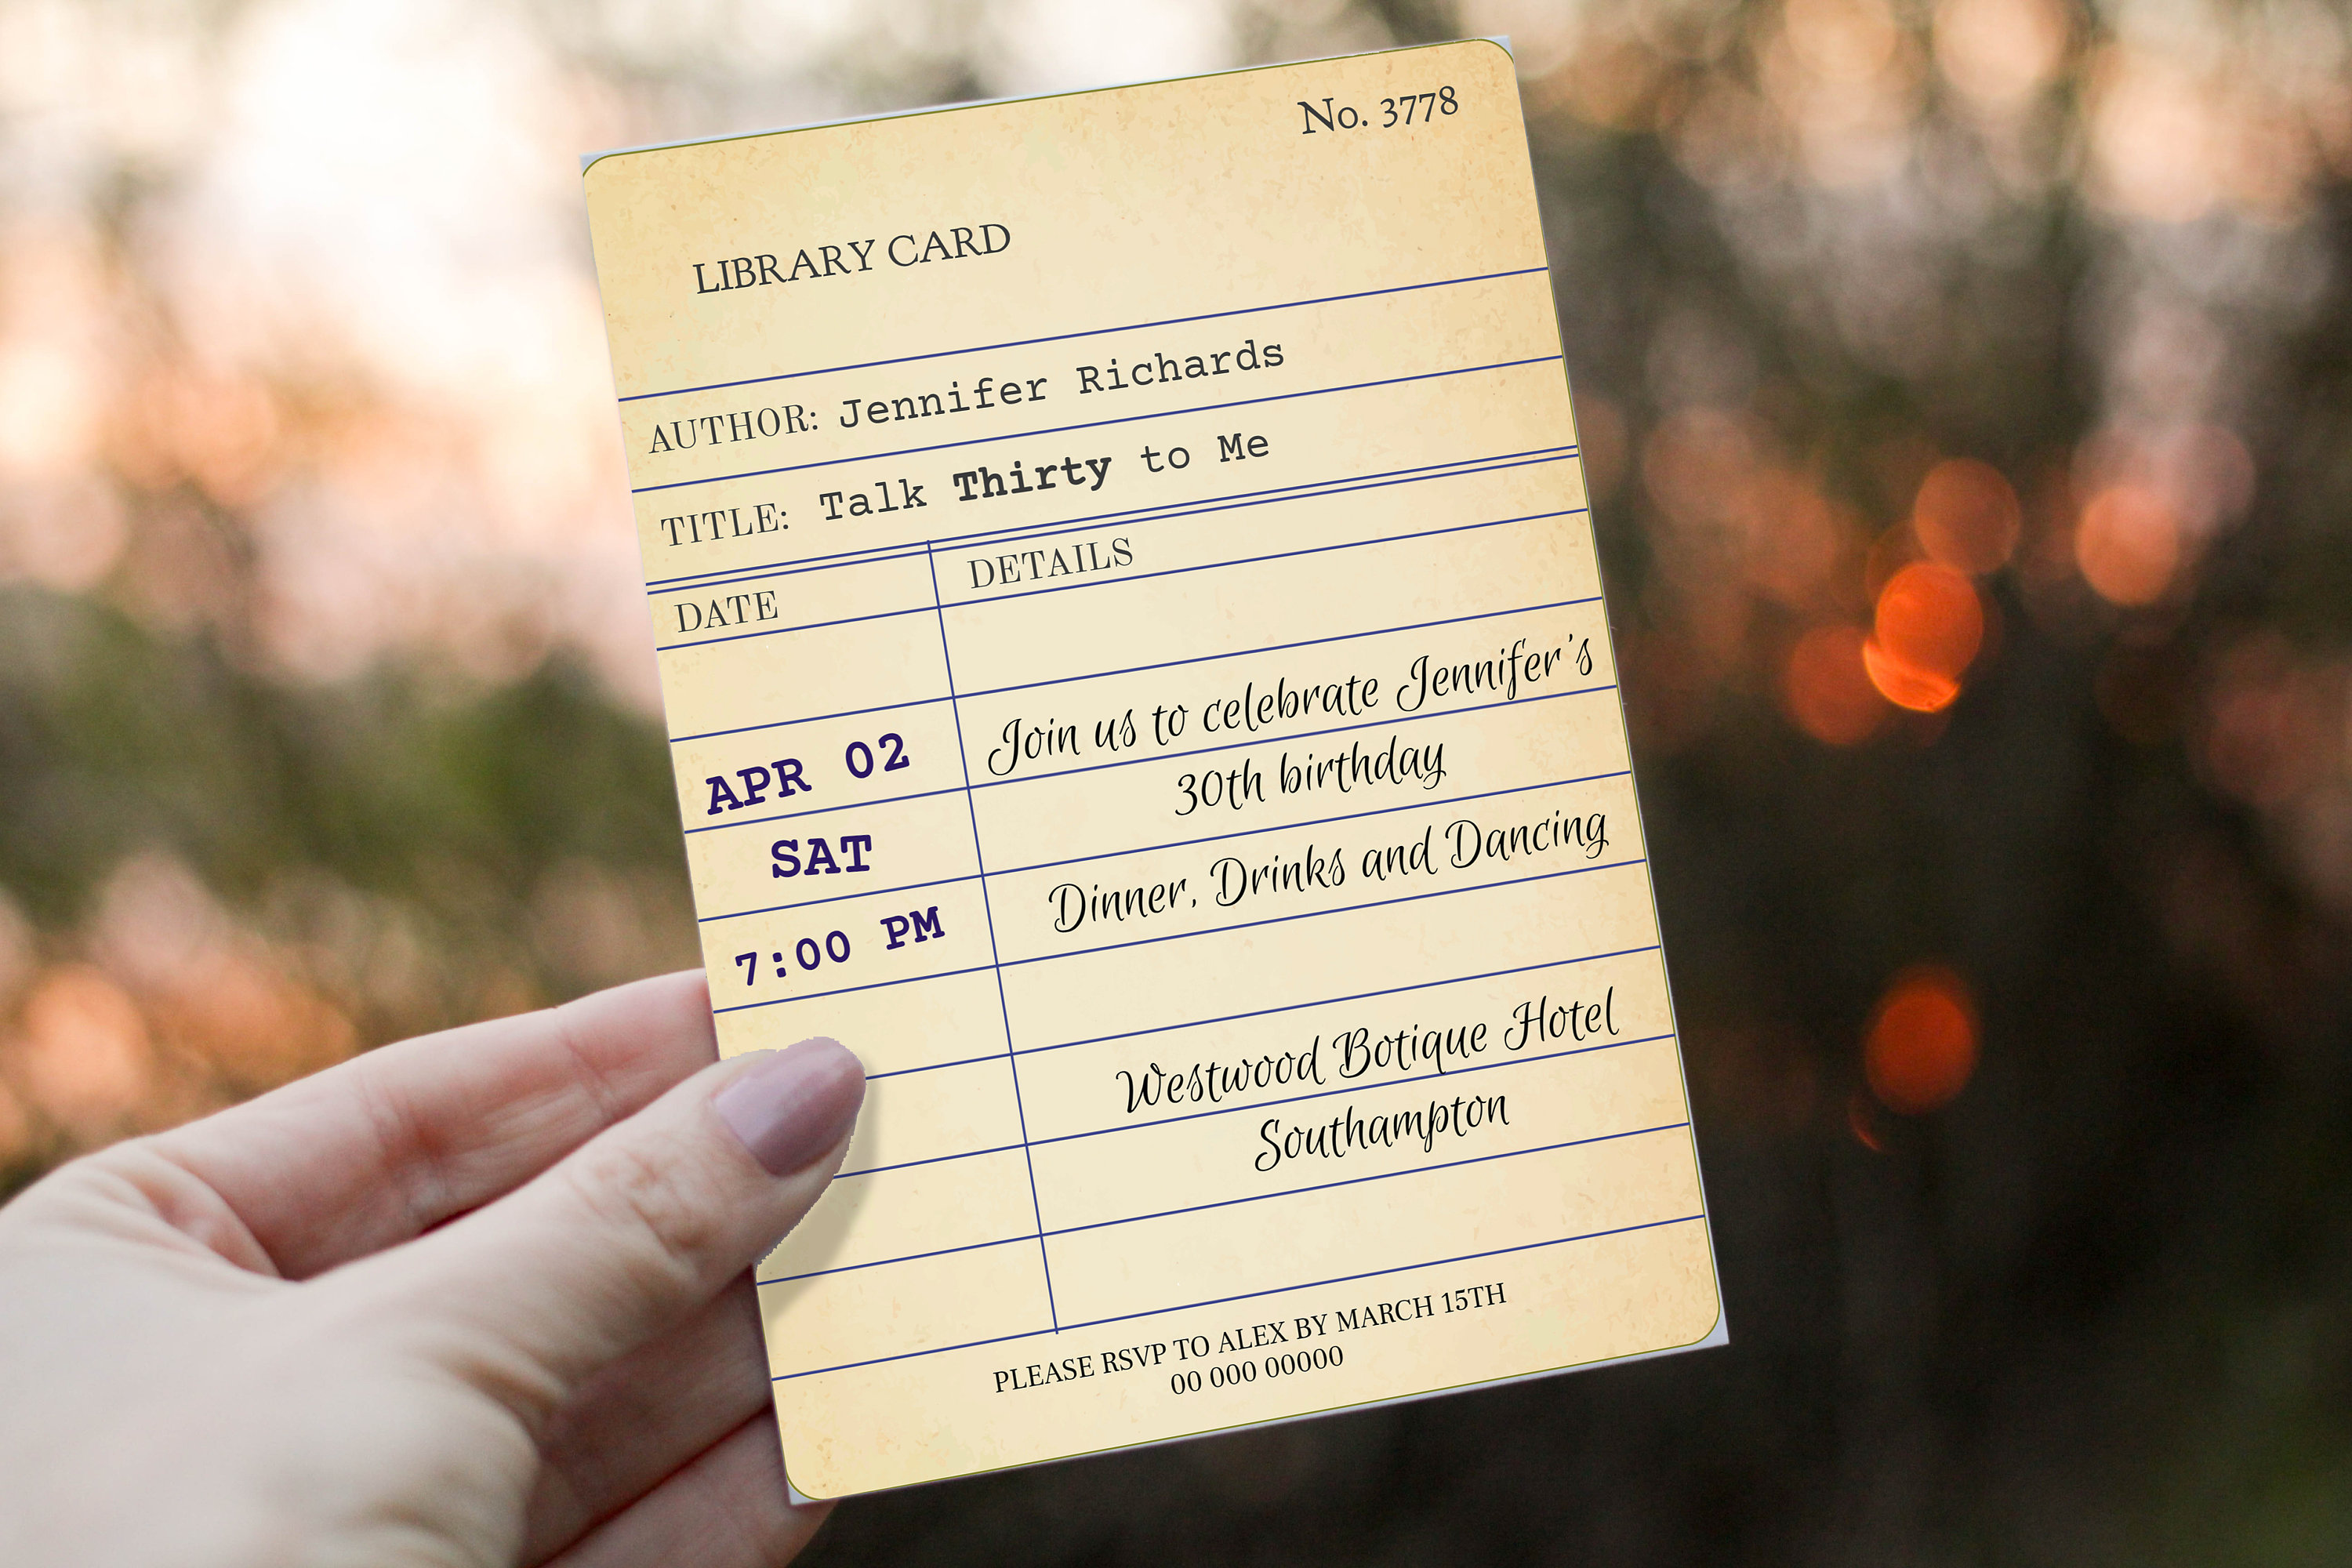 No. 3778
LIBRARY CARD
AUTHOR: Jennifer Richards
TITLE: Talk Thirty to Me
DATE DETAILS
APR 02 Join us to celebrate Jennifer's
30th birthday
SAT
Dinner, Drinks and Dancing
7:00 PM
Westwood Botique Hotel
Southampton
PLEASE RSVP TO ALEX BY MARCH 15TH
00 000 00000